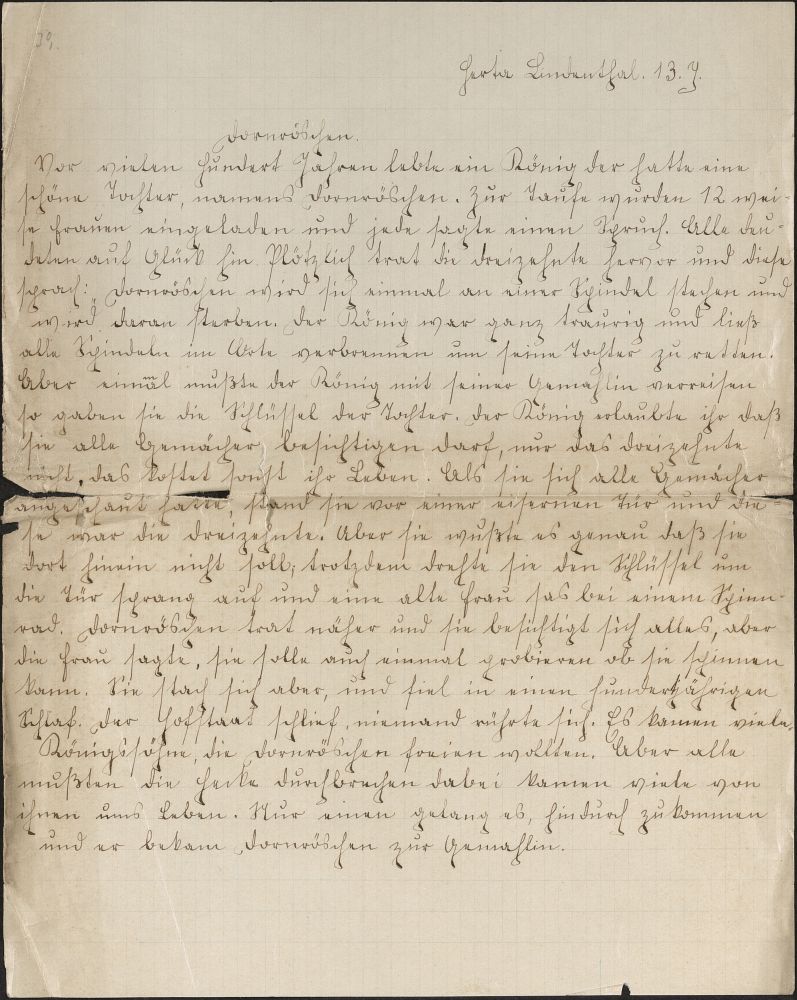 39.
Herta Lindenthal. 13. J.
Dornröschen.
Vor vielen hundert Jahren lebte ein König der hatte eine
schöne Tochter, namens Dornröschen. Zur Taufe wurden 12 wei-
se Frauen eingeladen und jede sagte einen Spruch. Alle deu-
deten auf Glück hin. Plötzlich trat die dreizehnte hervor und diese
sprach: „Dornröschen wird sich einmal an einer Spindel stechen und
wird daran sterben. Der König war ganz traurig und ließ
alle Spindeln im Orte verbrennen um seine Tochter zu retten.
Aber einmal mußte der König mit seiner Gemahlin verreisen
so gaben sie die Schlüssel der Tochter. Der König erlaubte ihr daß
sie alle Gemächer besichtigen darf, nur das dreizehnte
nicht, das kostet sonst ihr Leben. Als sie sich alle Gemächer
angeschaut hatte, stand sie vor einer eisernen Tür und die-
se war die dreizehnte. Aber sie wußte es genau daß sie
dort hinein nicht soll; trotzdem drehte sie den Schlüssel um
die Tür sprang auf und eine alte Frau sas bei einem Spinn-
rad. Dornröschen trat näher und sie besichtigt sich alles, aber
die Frau sagte, sie solle auch einmal probieren ob sie spinnen
kann. Sie stach sich aber, und fiel in einen hundertjährigen
Schlaf. Der Hofstaat schlief, niemand rührte sich. Es kamen viele
Königssöhne, die Dornröschen freien wollten. Aber alle
mußten die Hecke durchbrechen dabei kamen viele von
ihnen ums Leben. Nur einen gelang es, hindurch zu kommen
und er bekam Dornröschen zur Gemahlin.